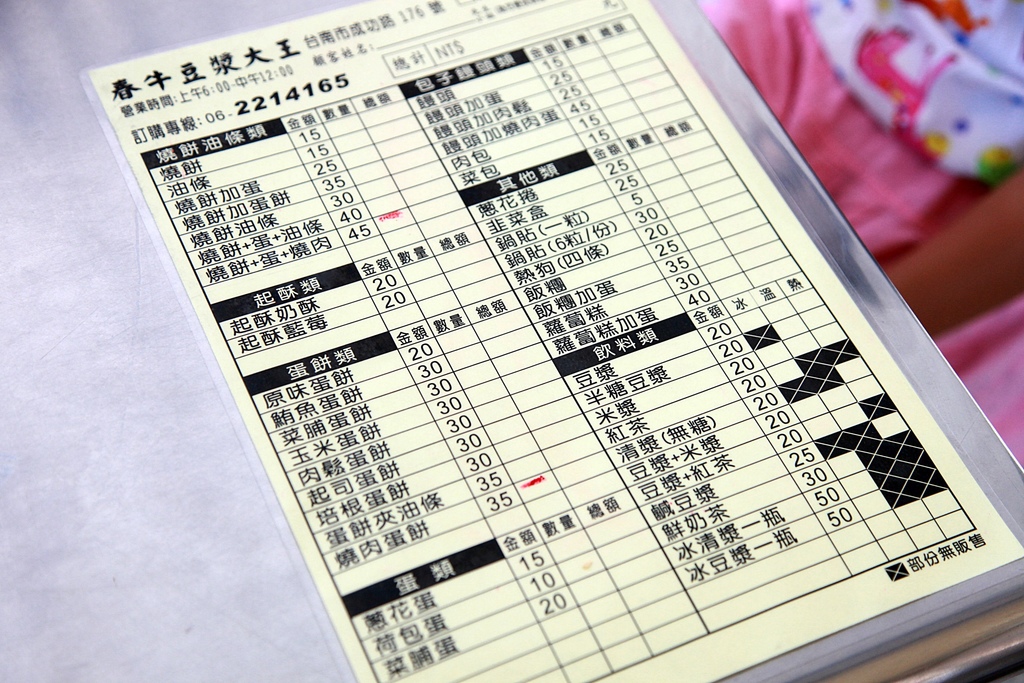 春牛豆漿大王 台南市成功路 176 號
營業時間:上午6:00-中午12:00 顧客姓名:
訂購專線:06-2214165 總計 NT$ 元
燒餅油條類 金額 數量 總額
燒餅 15
油條 15
燒餅加蛋 25
燒餅加蛋餅 35
燒餅油條 30
燒餅+蛋+油條 40
燒餅+蛋+燒肉 45
起酥類 金額 數量 總額
起酥奶酥 20
起酥藍莓 20
蛋餅類 金額 數量 總額
原味蛋餅 20
鮪魚蛋餅 30
菜脯蛋餅 30
玉米蛋餅 30
肉鬆蛋餅 30
起司蛋餅 30
培根蛋餅 30
蛋餅夾油條 35
燒肉蛋餅 35
蛋類 金額 數量 總額
蔥花蛋 15
荷包蛋 10
菜脯蛋 20
包子饅頭類 金額 數量 總額
饅頭 15
饅頭加蛋 25
饅頭加肉鬆 25
饅頭加燒肉蛋 45
肉包 15
菜包 15
其他類 金額 數量 總額
蔥花捲 25
韭菜盒 25
鍋貼(一粒) 5
鍋貼(6粒/份) 30
熱狗(四條) 20
飯糰 25
飯糰加蛋 35
蘿蔔糕 30
蘿蔔糕加蛋 40
飲料類 金額 冰 溫 熱
豆漿 20
半糖豆漿 20
米漿 20
紅茶 20
清漿(無糖) 20
豆漿+米漿 20
豆漿+紅茶 20
鹹豆漿 25
鮮奶茶 30
冰清漿一瓶 50
冰豆漿一瓶 50
部份無販售